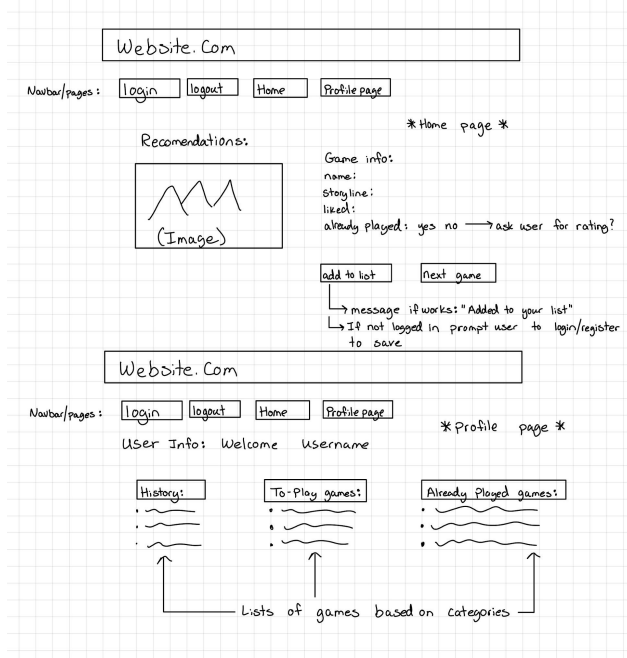 Website.Com
Navbar/pages: login logout Home Profile page
*Home page*
Recomendations:
(Image)
Game info:
name:
storyline:
liked:
already played: yes no → ask user for rating?
add to list next game
→ message if works: "Added to your list"
→ If not logged in prompt user to login/register
to save
Website.Com
Navbar/pages: login logout Home Profile page
*Profile page*
User Info: Welcome Username
History: To-Play games: Already Played games:
Lists of games based on categories